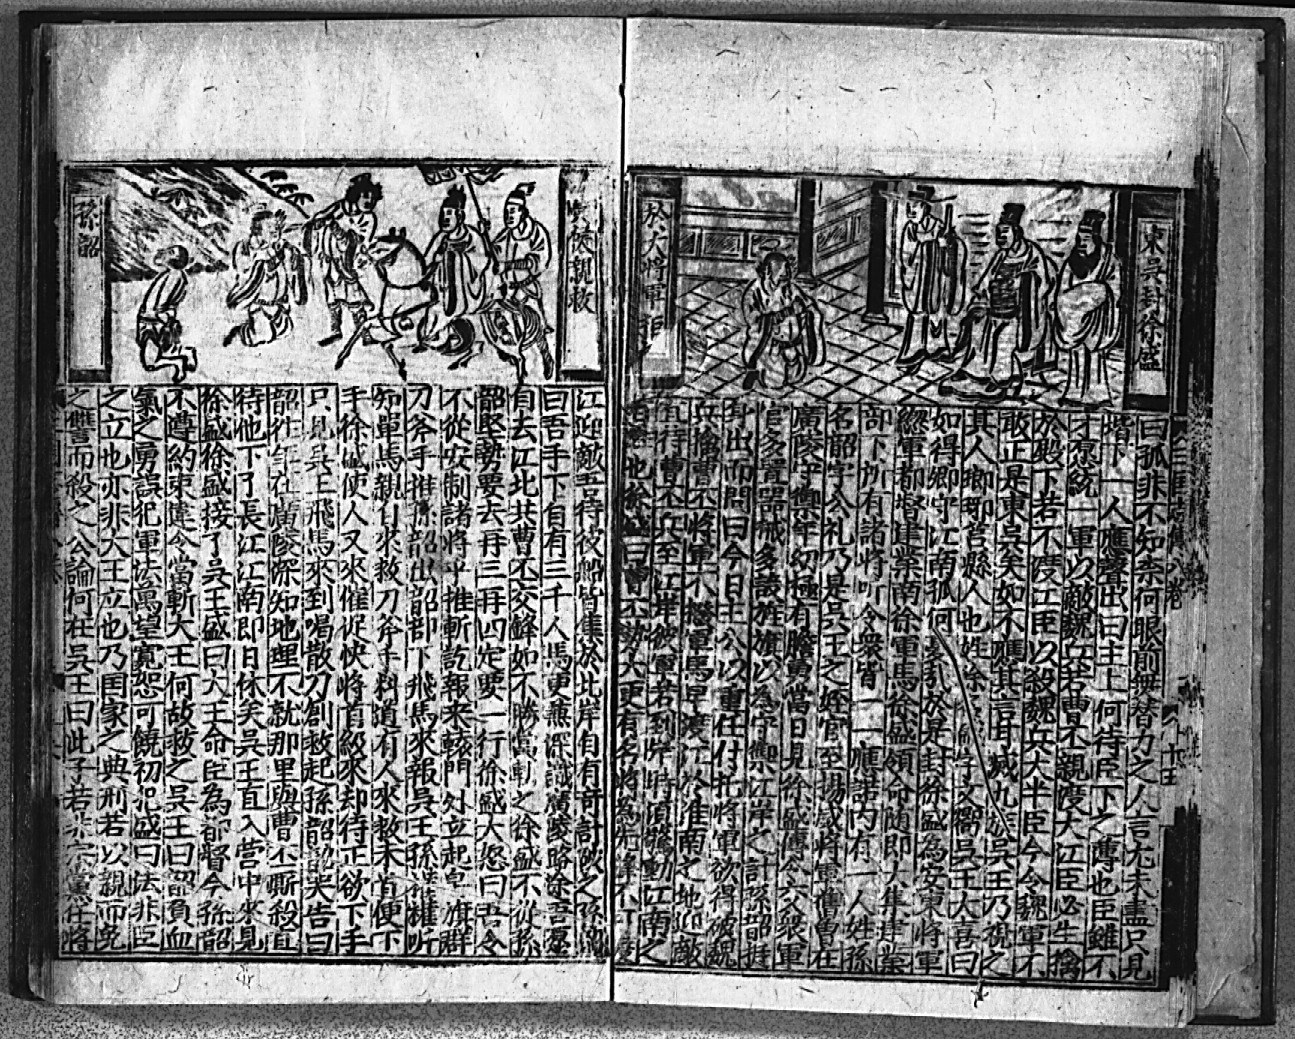 東吳封徐盛
於大將軍
曰孤非不知奈何眼前無替力之人言尤未盡只見
堦下一人應聲出曰主上何待臣下之薄也臣雖不
才愿統一軍以敵魏兵若曹丕親渡大江臣必生擒
於殿下若不渡江臣以殺魏兵大半臣今令魏軍不
敢正是東吳矣如不應其言耳滅九族吳王乃視之
其人瑯琊莒縣人也姓徐字文嚮吳王大喜曰
如得卿守江南孤何憂乱於是封徐盛為安東將軍
總軍都督建業南徐軍馬徐盛領命随即大集建業
部下所有諸將听令衆皆一一應諾内有一人姓孫
名韶字公礼乃是吳王之姪官至揚威將軍舊曾在
廣陵守御年幼極有膽勇當日見徐盛傳令交衆軍
官多置噐械多設旌旗以為守御江岸之計孫韶挺
身出而問曰今日主公以重任付托將軍欲得破魏
兵擒曹丕將軍不撥軍馬早渡江於淮南之地迎敵
直待曹丕兵至江岸彼軍若到岸時須驚動江南之
也徐盛曰曹丕勢大更有名將為先鋒不可渡
親救
孫韶
江迎敵吾待彼船皆集於北岸自有奇計破之孫韶
曰吾手下自有三千人馬更兼深識廣陵路徐吾愿
自去江北共曹丕交鋒如不勝當斬之徐盛不從孫
韶堅勢要去再三再四定要一行徐盛大怒曰吾令
不從安制諸將乎推斬訖報來轅門外立起皂旗群
刀斧手推孫韶出韶部下飛馬來報吳王孫權權听
知單馬親自來救刀斧手料道有人來救未曾便下
手徐盛使人又來催促快將首級來却待正欲下手
只見吳王飛馬來到喝散刀創救起孫韶韶哭告曰
韶往年在廣陵深知地理不就那里與曹丕厮殺直
待他下了長江江南即日休矣吳王直入营中來見
徐盛徐盛接了吳王盛曰大王命臣為都督今孫韶
不遵約束違令當斬大王何故救之吳王曰韶負血
氣之勇誤犯軍法萬望寬恕可饒初犯盛曰法非臣
之立也亦非大王立也乃国家之典刑若以親而免
之讐而殺之公論何在吳王曰此子若非宗黨任將